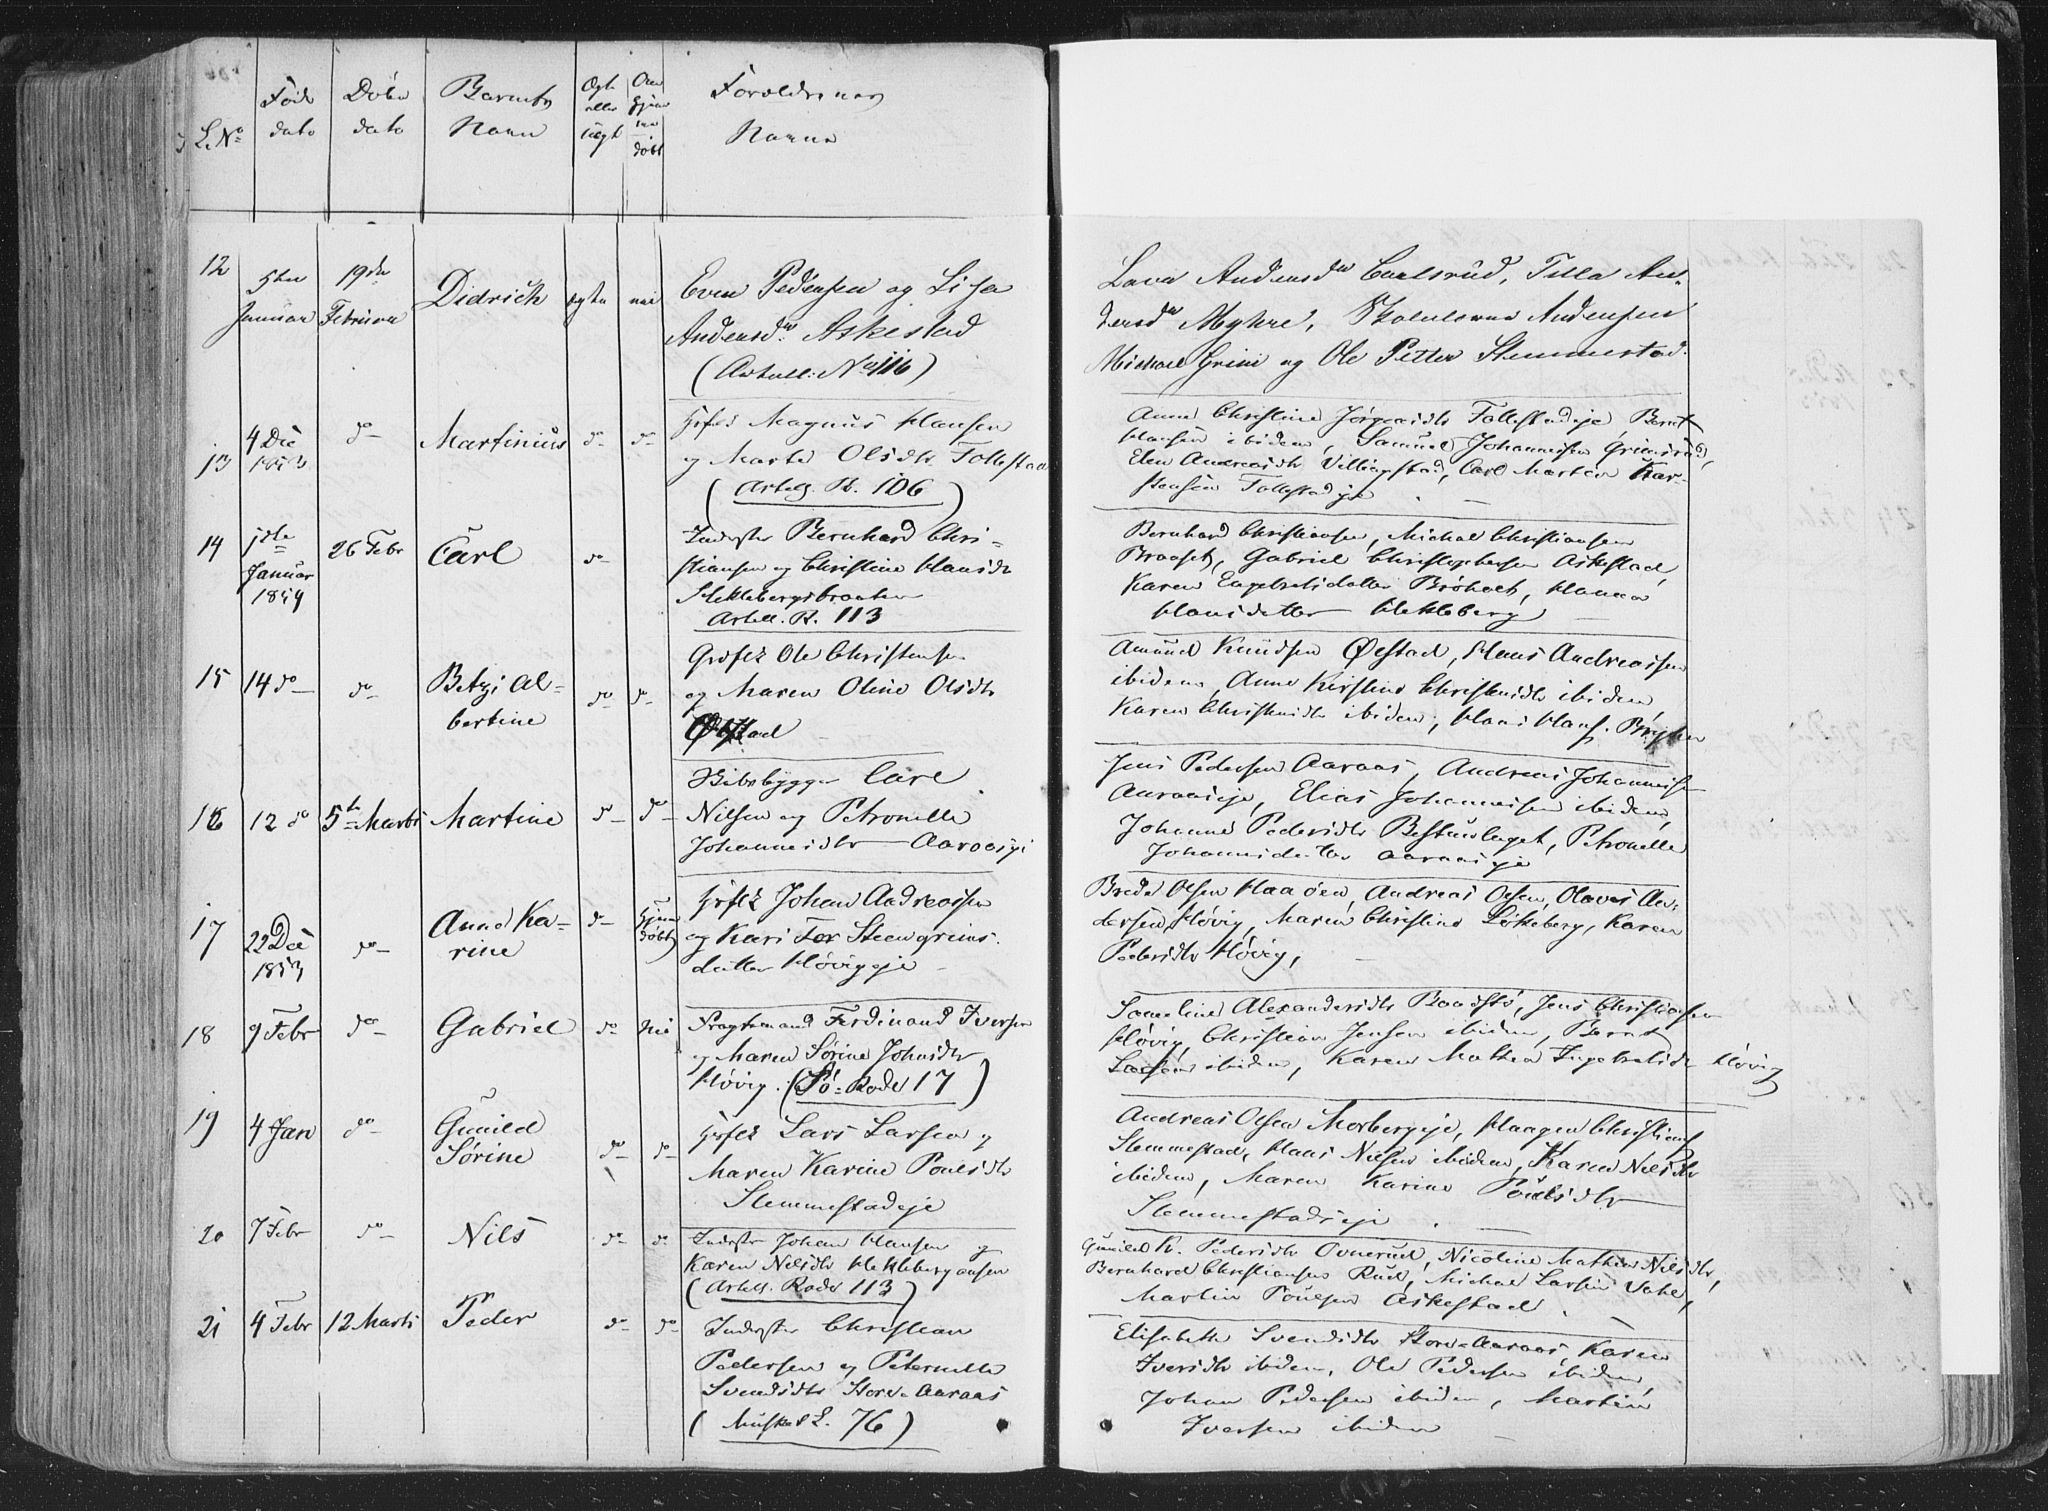 L. No
Føds
dato
Døbe
dato
Barnets
Navn
Ægte
eller
uægte
Om
hjem
me
døbt
Forældrenes
Navne
12
5te
Januar
19de
Februar
Didrich
ægte
nei
Even Pedersen og Lisa
Andersdr Askestad
(Artell: No 116)
Andersdr Carlsrud, Tilla An-
dersdr Myhre, Andersen
Michael Grini og Ole Petter Stemmestad.
13
4 Dec
1853
do
Martinius
do
do
Hrfl Magnus Hansen
og Marte Olsdtr Follestad
(Artelg. R. 106)
Anne Christine Follestadeje, Bernt
Hansen ibidem, Samuel Johannesen Grimsrud,
Elen Andreasdtr Villingstad, Carl Martin Kar-
stensen Follestadeje
14
1ste
Januar
1854
26 Febr
Carl
do
Inderster Bernhard Chri-
stiansen og Christine Hansdtr
Heklebergsbraaten
Artell. R. 113
Bernhard Christiansen, Michal Christiansen
Braaset, Gabriel Christophersen Askestad,
Karen Engebretsdatter Brøholt, Hanna
Hansdatter Hekleberg
15
14 do
do
Betzi Al-
bertine
do
do
Grdflk Ole Christensen
og Maren Oline Olsdtr
Østad
Amund Knudsen Østad, Hans Andreassen
ibidem, Anne Kirstine Christensdtr ibidem,
Karen Christensdtr ibidem, Hans Hans.
16
12 do
5te Marts
Martine
do
do
Bibobygger Carl
Nilsen og Petronelle
Johannesdtr Aaraaseje
Jens Pedersen Aaraas, Andreas Johannesen
Aaraaseje, Elias Johannesen ibidem,
Johanne Pedersdtr Petronelle
Johannesdatter Aaraaseje
17
22 Dec
1853
do
Anne Ka-
rine
do
Hjem
døbt
Hrflk Johan Andreassen
og Kari Tor Steengrims-
datter Høvigeje
Brede Olsen Haaøen, Andreas Olsen, Olaves An-
dersen Høvig, Maren Christine Løkeberg, Karen
Pedersdtr Høvig,
18
9 Febr
do
Gabriel
do
Nei
Fragtemand Ferdinand Iversen
og Maren Sørine Johnsdtr
Høvig. (Sø-Rode 17)
Sameline Alexandersdtr Baadstø, Jens Christiansen
Høvig, Christian Jensen ibidem, Bernt
Larsen ibidem, Karen Mathea Ingebretsdtr Høvig
19
4 Jan
do
Gunild
Sørine
do
do
Hrflk Lars Larsen og
Maren Karine Poulsdtr
Stemmestadeje
Andreas Olsen Morbergeje, Haagen Christians
Stemmestad, Hans Nilsen ibidem, Karen Nilsdtr
ibidem, Maren Karine Poulsdtr
Stemmestadseje
20
7 Febr
do
Nils
do
do
Inderster Johan Hansen og
Karen Nilsdtr Heklebergaasen
(Artelg. Rode 113)
Gunild K. Pedersdtr Ovnerud, Nicoline Mathea Nilsdtr,
Bernhard Christiansen Rud, Michal Larsen
Martin Poulsen Askestad.
21
4 Febr
12 Marts
Peder
do
do
Inderster Christian
Pedersen og Peternelle
Svendsdtr Store-Aaraas
(Musket L. 76)
Elisabeth Svendsdtr Store-Aaraas Karen
Iversdtr ibidem, Ole Pedersen ibidem,
Johan Pedersen ibidem, Martin
Iversen ibidem